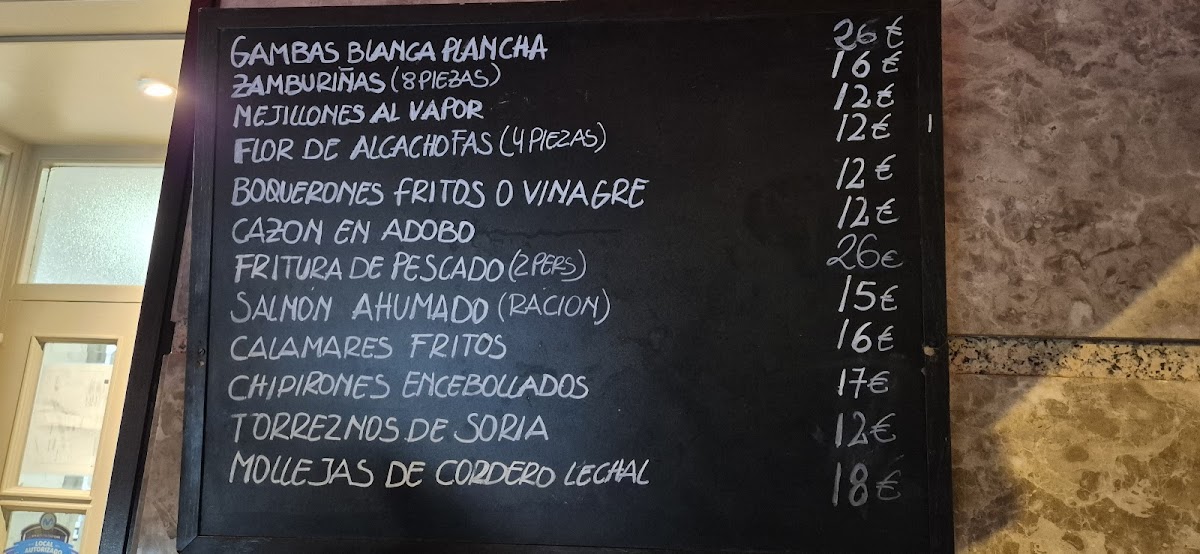 GAMBAS BLANCA PLANCHA 26€
ZAMBURIÑAS (8 PIEZAS) 16€
MEJILLONES AL VAPOR 12€
FLOR DE ALCACHOFAS (4 PIEZAS) 12€
BOQUERONES FRITOS O VINAGRE 12€
CAZON EN ADOBO 12€
FRITURA DE PESCADO (2 PERS) 26€
SALMÓN AHUMADO (RACION) 15€
CALAMARES FRITOS 16€
CHIPIRONES ENCEBOLLADOS 17€
TORREZNOS DE SORIA 12€
MOLLEJAS DE CORDERO LECHAL 18€
LOCAL
AUTORIZADO